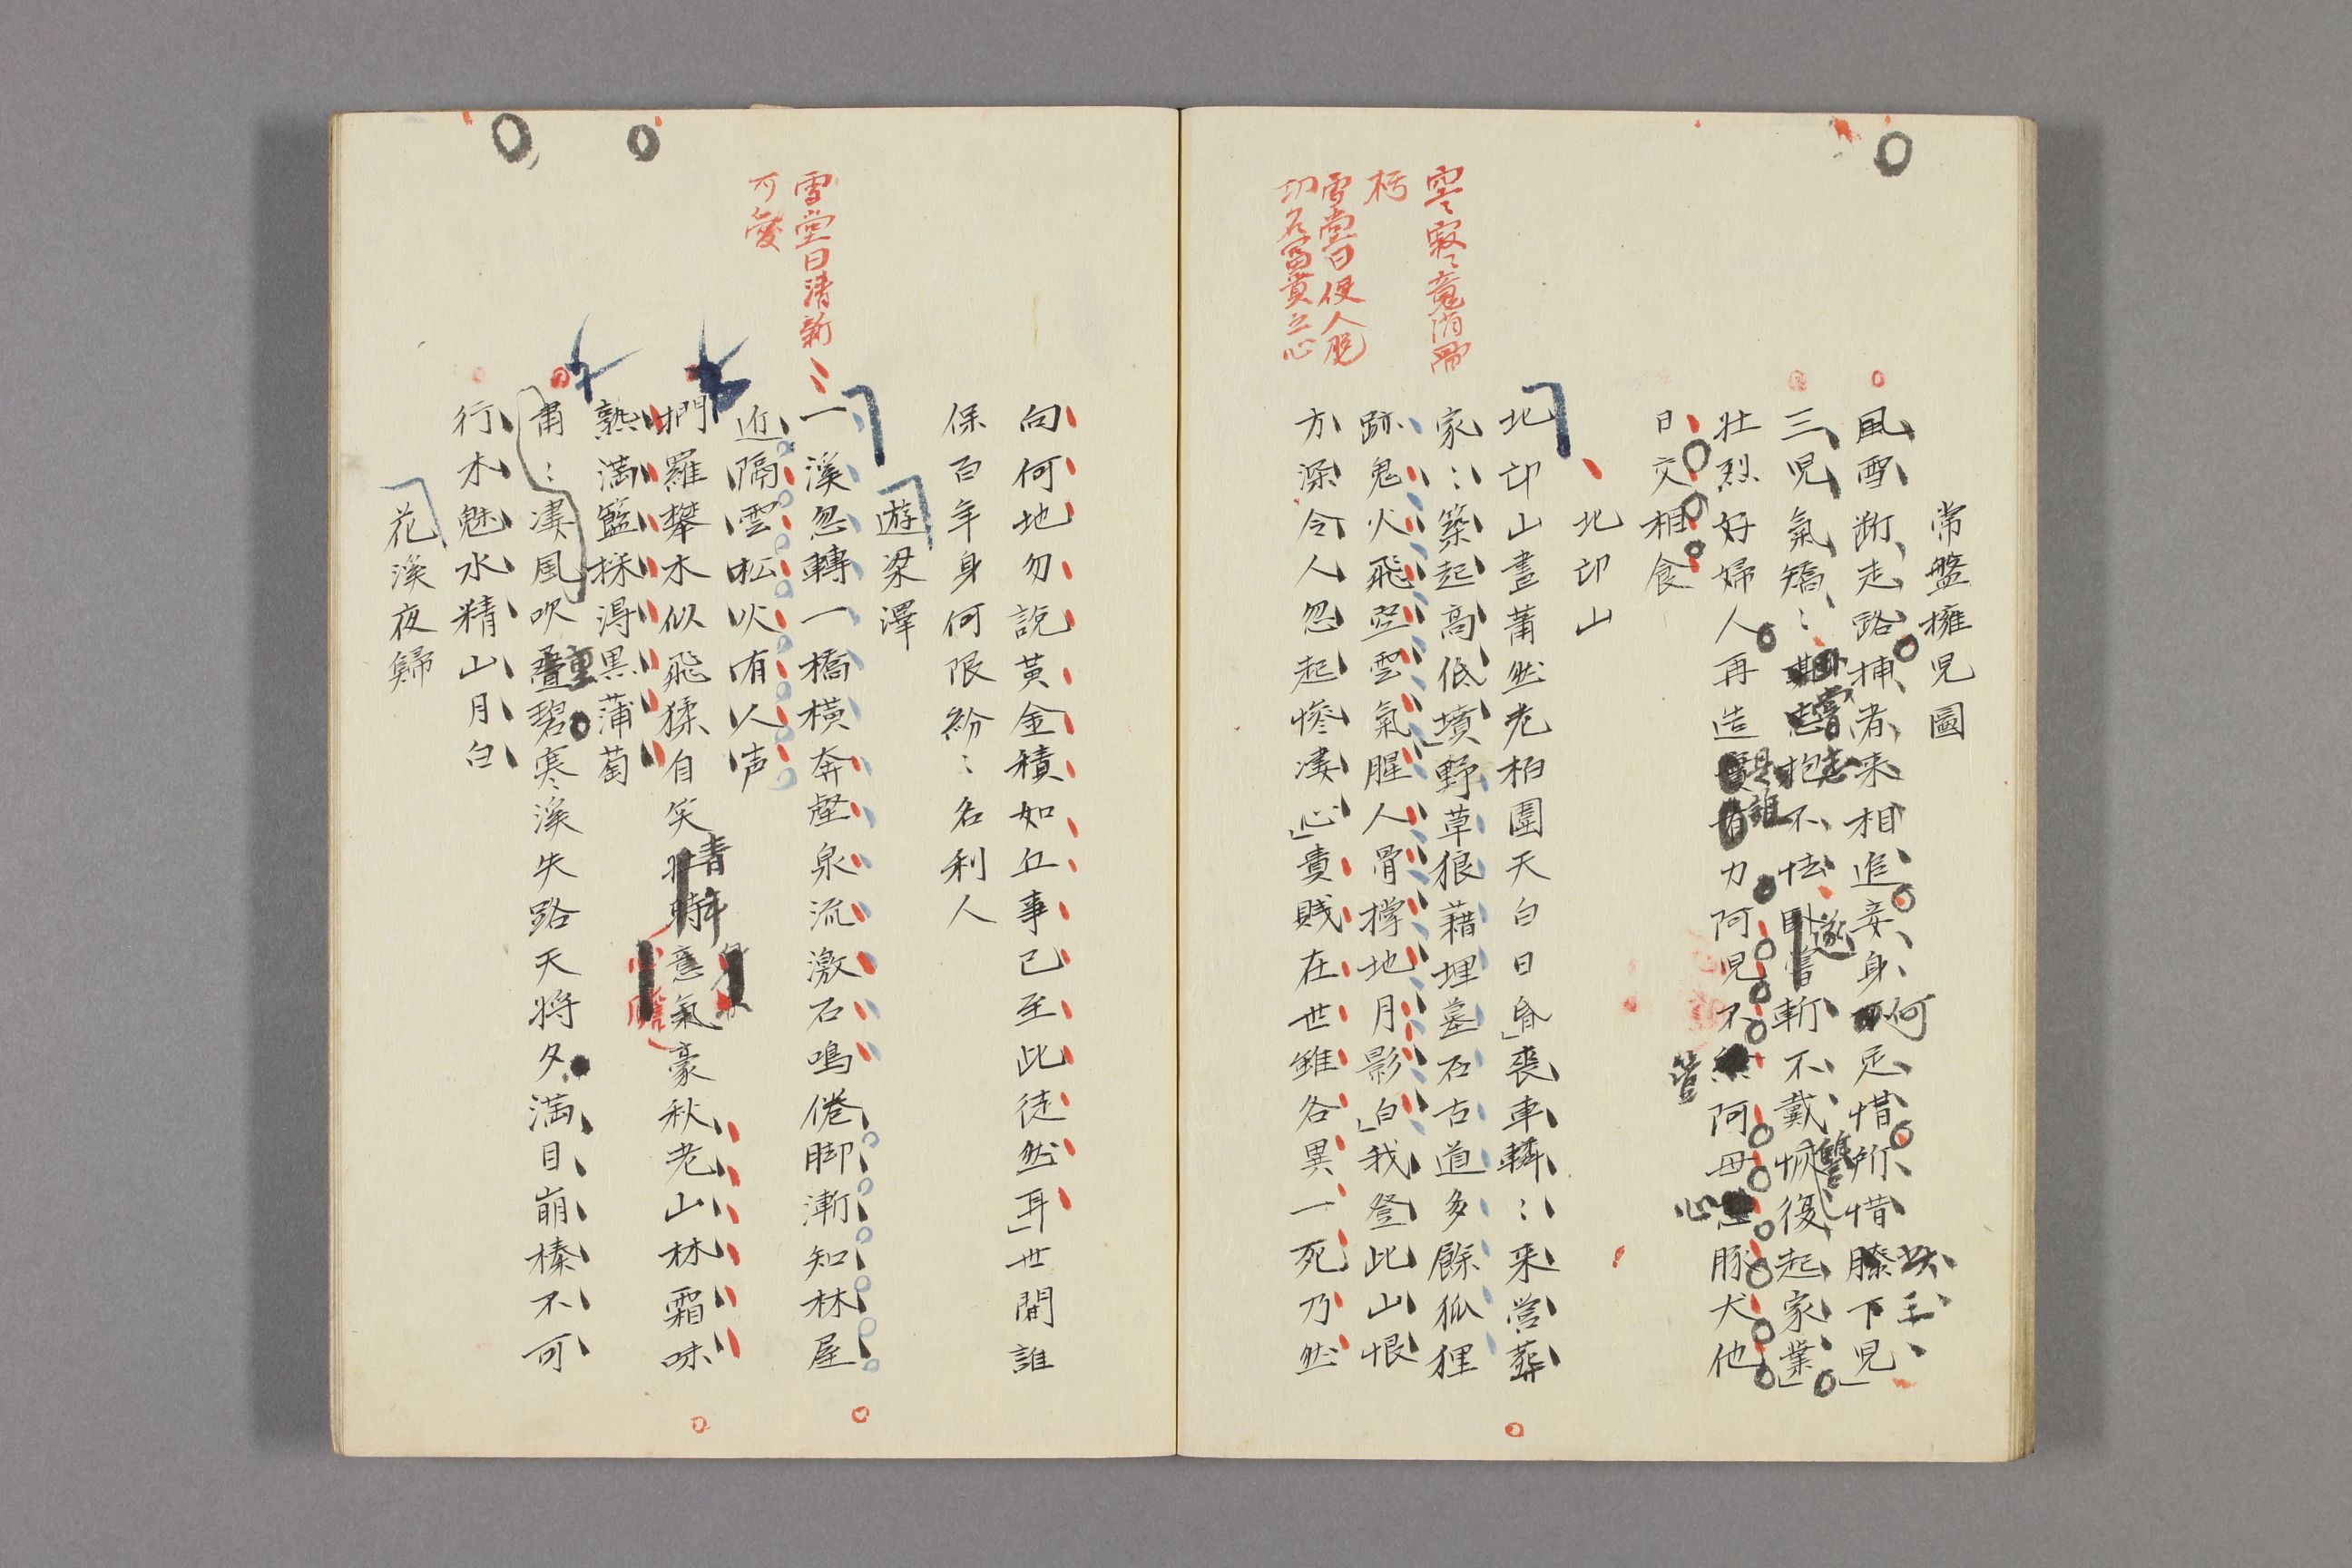 常盤擁児圖
風雪斷走路捕者来相追妾身何足惜所惜膝下児
三児氣矯〻臥嘗志抱不怯遂斬不戴讐恢復起家業
壮烈好婦人再造是誰力阿児不阿母心豚犬他
日交相食
北邙山
北邙山晝蕭然老柏圍天白日昏喪車轔〻来営葬
家〻築起高低墳野草狼藉埋墓石古道多餘狐狸
跡鬼火飛空雲氣腥人骨撑地月影白我登此山恨
方深令人忽起惨凄心貴賎在世雖各異一死乃然
空〻寂〻竟消骨
朽
雪堂曰使人脱
功名冨貴之心
向何地勿說黃金積如丘事已至此徒然耳世間誰
保百年身何限紛〻名利人
遊梁澤
一溪忽轉一橋横奔壑泉流激石鳴倦脚漸知林屋
近隔雲松火有人声
捫羅攀木似飛猱自笑青年意氣豪秋老山林霜味
熟満籃採得黒蒲萄
肅〻凄風吹重碧寒溪失路天将夕満目崩榛不可
行木魅水精山月白
花溪夜歸
雪堂曰清新
可愛